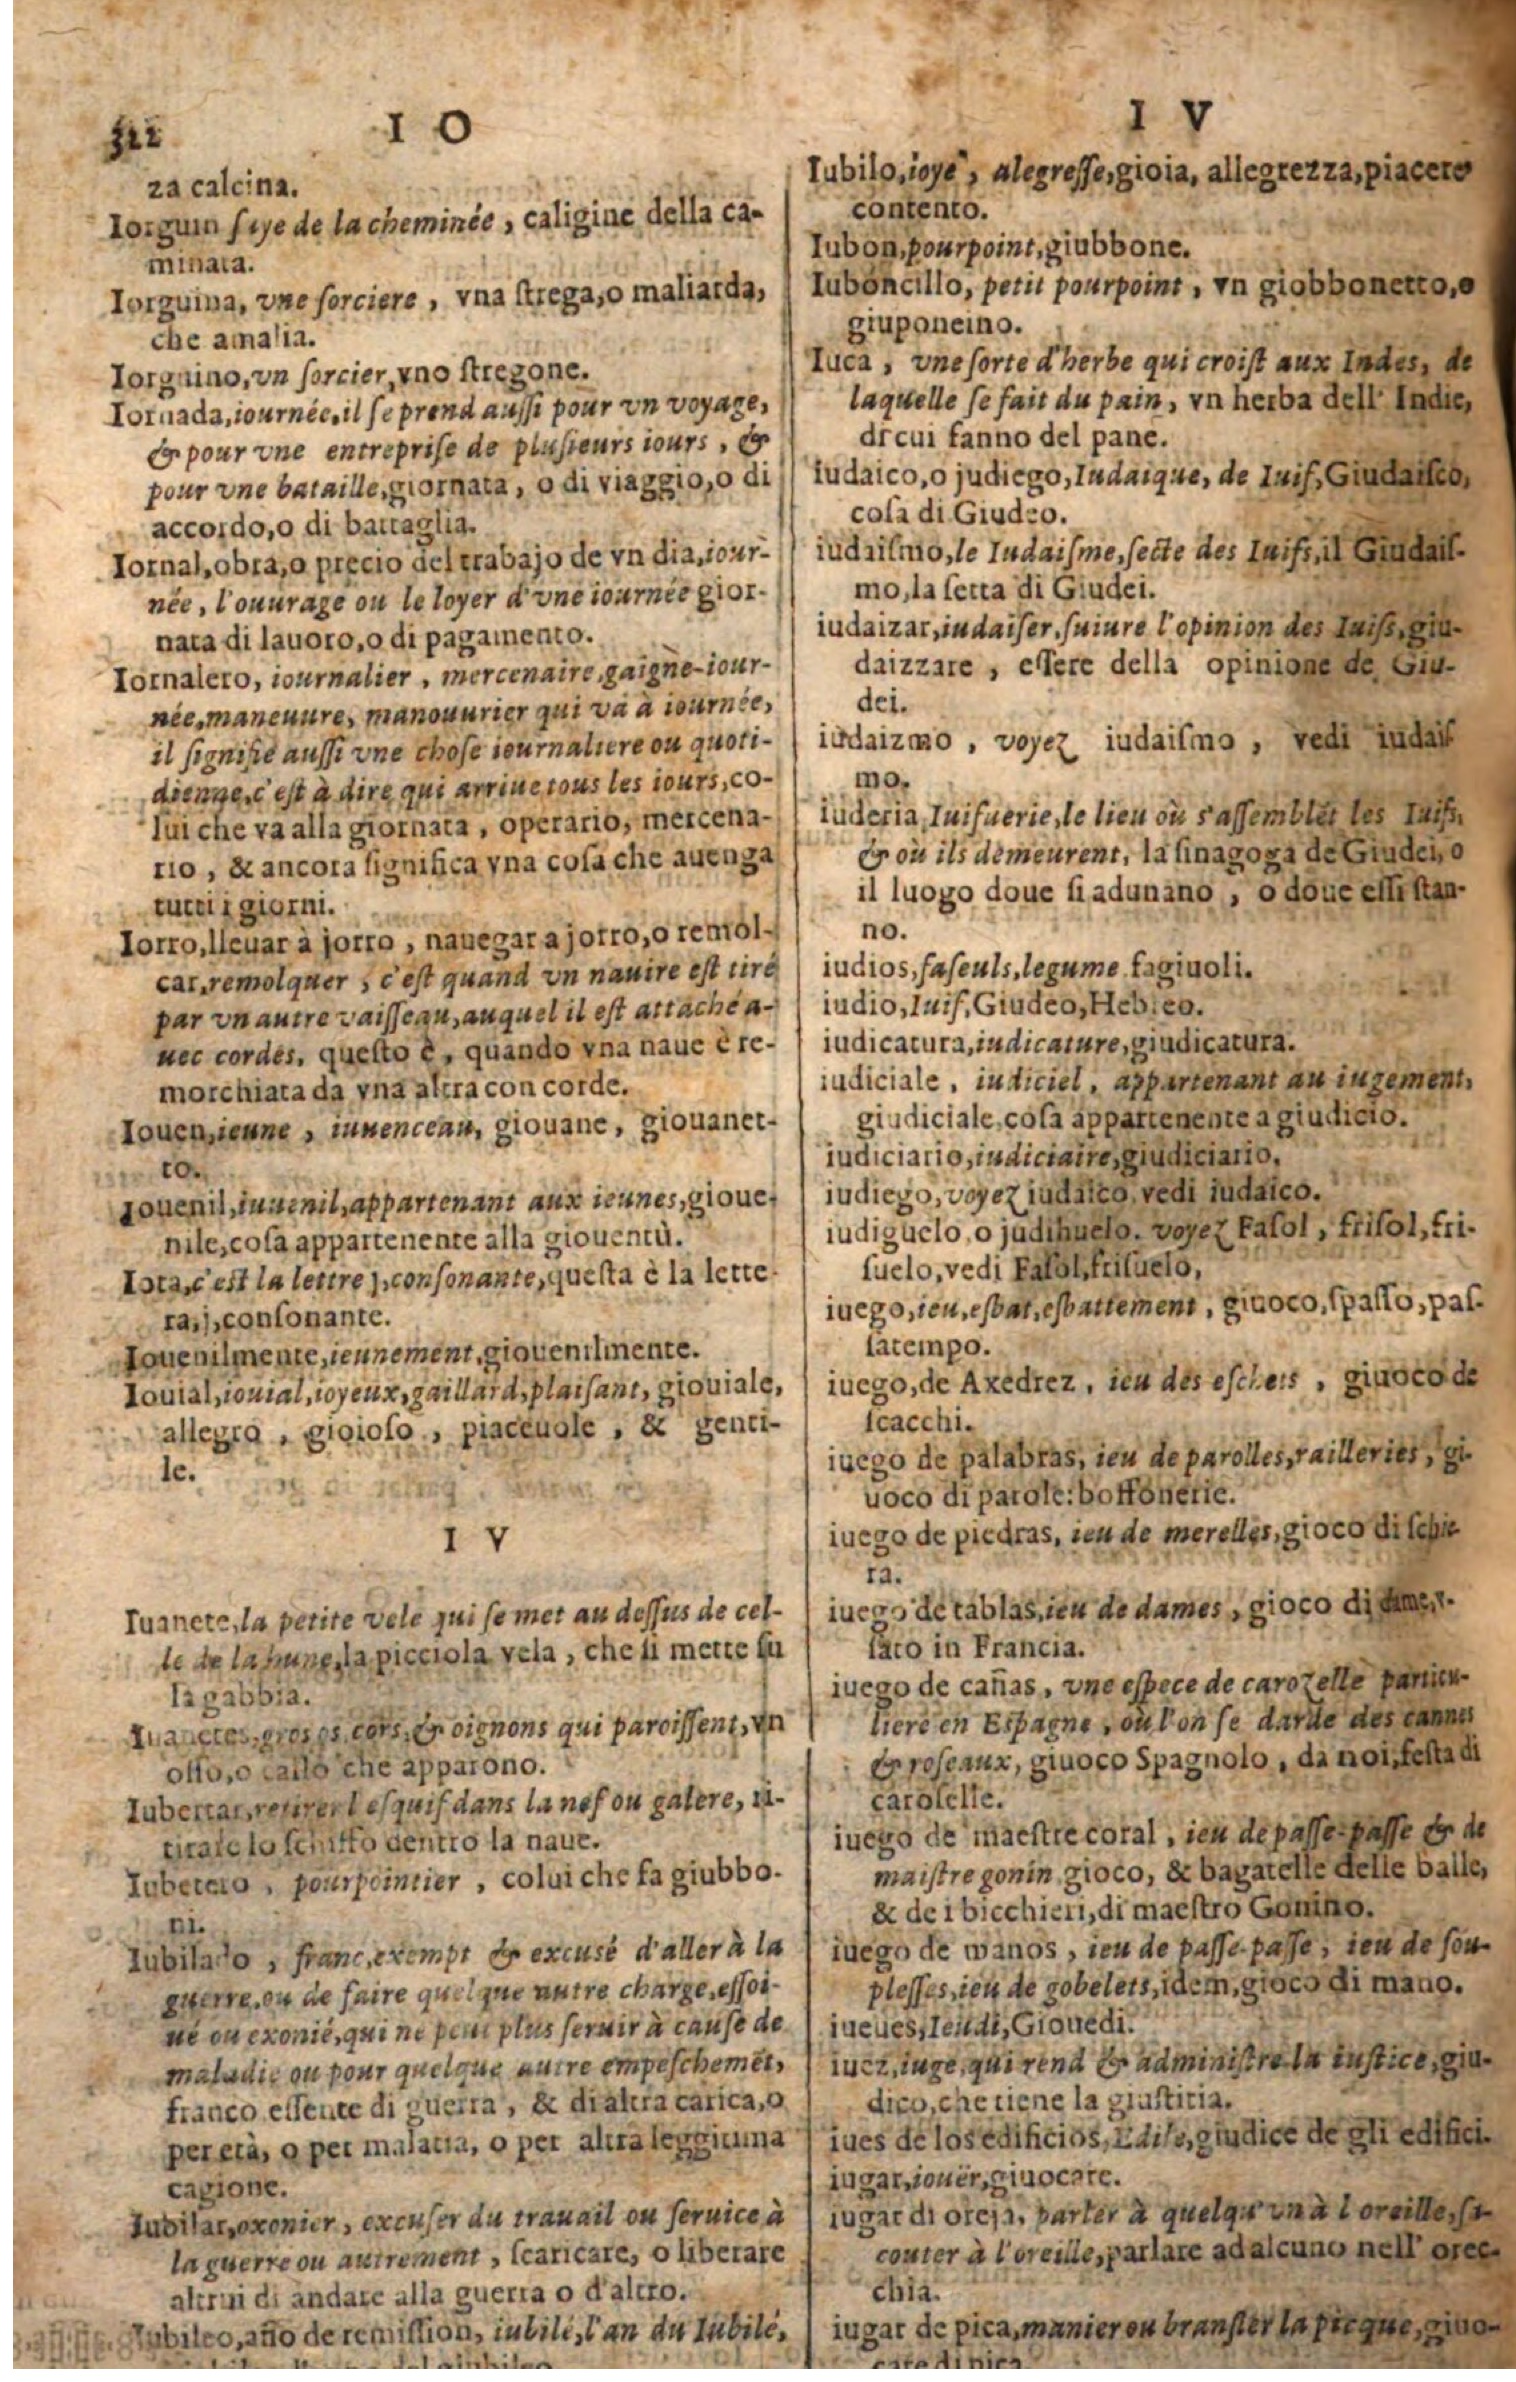 I O
za calcina.
Iorguin ſuye de la cheminée, caligine della ca-
minata.
Iorguina, vne ſorciere, vna ſtrega, o maliarda,
che amalia.
Iorguino, vn ſorcier, vno ſtregone.
Iornada, iournée, il ſe prend auſſi pour vn voyage,
& pour vne entrepriſe de pluſieurs iours, &
pour vne bataille, giornata, o di viaggio, o di
accordo, o di battaglia.
Iornal, obra, o precio del trabajo de vn dia, iour-
née, l'ouurage ou le loyer d'vne iournée gior-
nata di lauoro, o di pagamento.
Iornalero, iournalier, mercenaire, gaigne-iour-
née, maneuure, manouurier qui va à iournée,
il ſignifie auſſi vne choſe iournaliere ou quoti-
dienne, c'eſt à dire qui arriue tous les iours, co-
lui che va alla giornata, operario, mercena-
rio, & ancora ſignifica vna coſa che auenga
tutti i giorni.
Iorro, lleuar à jorro, nauegar a jorro, o remol-
car, remolquer, c'eſt quand vn nauire eſt tiré
par vn autre vaiſſeau, auquel il eſt attaché a-
uec cordes, queſto è, quando vna naue è re-
morchiata da vna altra con corde.
Iouen, ieune, iuuenceau, giouane, giouanet-
to.
Iouenil, iuuenil, appartenant aux ieunes, gioue-
nile, coſa appartenente alla giouentù.
Iota, c'eſt la lettre j, conſonante, queſta è la lette-
ra, j, conſonante.
Iouenilmente, ieunement, giouenilmente.
Iouial, iouial, ioyeux, gaillard, plaiſant, giouiale,
allegro, gioioſo, piaceuole, & genti-
le.
I V
Iuanete, la petite vele qui ſe met au deſſus de cel-
le de la hune, la picciola vela, che ſi mette ſu
la gabbia.
Iuanetes, gros os, cors, & oignons qui paroiſſent, vn
oſſo, o callo che apparono.
Iubertar, retirer l'eſquif dans la nef ou galere, ri-
tirare lo ſchiffo dentro la naue.
Iubetero, pourpointier, colui che fa giubbo-
ni.
Iubilado, franc, exempt & excusé d'aller à la
guerre, ou de faire quelque autre charge, eſſoi-
né ou exonié, qui ne peut plus ſeruir à cauſe de
maladie ou pour quelque autre empeſchemēt,
franco eſſente di guerra, & di altra carica, o
per età, o per malatia, o per altra leggitima
cagione.
Iubilar, exonier, excuſer du trauail ou ſeruice à
la guerre ou autrement, ſcaricare, o liberare
altrui di andare alla guerra o d'altro.
Iubileo, año de remiſſion, iubilé, l'an du Iubilé,
I V
Iubilo, ioye, alegreſſe, gioia, allegrezza, piacere
contento.
Iubon, pourpoint, giubbone.
Iuboncillo, petit pourpoint, vn giobbonetto, o
giuponcino.
Iuca, vne ſorte d'herbe qui croiſt aux Indes, de
laquelle ſe fait du pain, vn herba dell' Indie,
di cui fanno del pane.
iudaico, o judiego, Iudaique, de Iuif, Giudaiſco,
coſa di Giudeo.
iudaiſmo, le Iudaiſme, ſecte des Iuifs, il Giudaiſ-
mo, la ſetta di Giudei.
iudaizar, iudaiſer, ſuiure l'opinion des Iuifs, giu-
daizzare, eſſere della opinione de Giu-
dei.
iudaizmo, voyez iudaiſmo, vedi iudaiſ
mo.
iuderia, Iuifuerie, le lieu où s'aſſemblēt les Iuifs,
& où ils demeurent, la ſinagoga de Giudei, o
il luogo doue ſi adunano, o doue eſſi ſtan-
no.
iudios, faſeuls, legume fagiuoli.
iudio, Iuif, Giudeo, Hebreo.
iudicatura, iudicature, giudicatura.
iudiciale, iudiciel, appartenant au iugement,
giudiciale, coſa appartenente a giudicio.
iudiciario, iudiciaire, giudiciario.
iudiego, voyez iudaico, vedi iudaico.
iudiguelo, o judihuelo. voyez Faſol, friſol, fri-
ſuelo, vedi Faſol, friſuelo,
iuego, ieu, esbat, esbattement, giuoco, ſpaſſo, paſ-
ſatempo.
iuego, de Axedrez, ieu des eſchets, giuoco de
ſcacchi.
iuego de palabras, ieu de parolles, railleries, gi-
uoco di parole: boffonerie.
iuego de piedras, ieu de merelles, gioco di ſchie
ra.
iuego de tablas, ieu de dames, gioco di dame, v-
ſato in Francia.
iuego de cañas, vne eſpece de carozelle particu-
liere en Eſpagne, où l'on ſe darde des cannes
& roſeaux, giuoco Spagnolo, da noi, feſta di
caroſelle.
iuego de maeſtre coral, ieu de paſſe-paſſe & de
maiſtre gonin gioco, & bagatelle delle balle,
& de i bicchieri, di maeſtro Gonino.
iuego de manos, ieu de paſſe-paſſe, ieu de ſou-
pleſſes, ieu de gobelets, idem, gioco di mano.
iueues, Ieudi, Giouedi.
iuez, iuge, qui rend & adminiſtre la iuſtice, giu-
dico, che tiene la giuſtitia.
iues de los edificios, Edile, giudice de gli edifici.
iugar, iouër, giuocare.
iugar di oreja, parler à quelqu'vn à l'oreille, ſa-
couter à l'oreille, parlare ad alcuno nell' orec-
chia.
iugar de pica, manier ou branſler la picque, giuo-
care di pica.